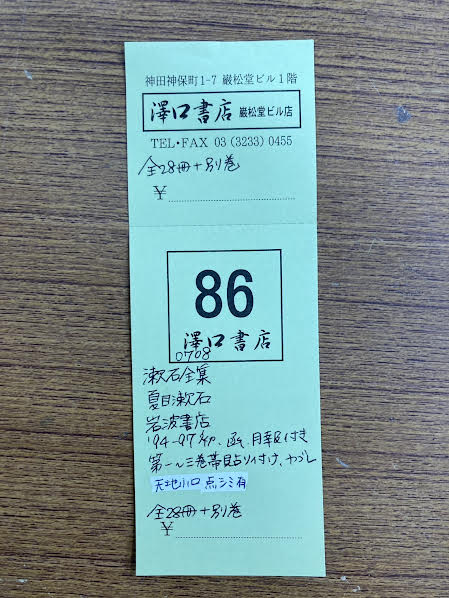 神田神保町1-7 巌松堂ビル1階
澤口書店 巌松堂ビル店
TEL・FAX 03 (3233) 0455
全28冊+別巻
¥
86
澤口書店
0708
漱石全集
夏目漱石
岩波書店
'94-97 初、函、月報付き
第一~三巻帯貼り付け、ヤブレ
天地小口 点シミ有
全28冊+別巻
¥